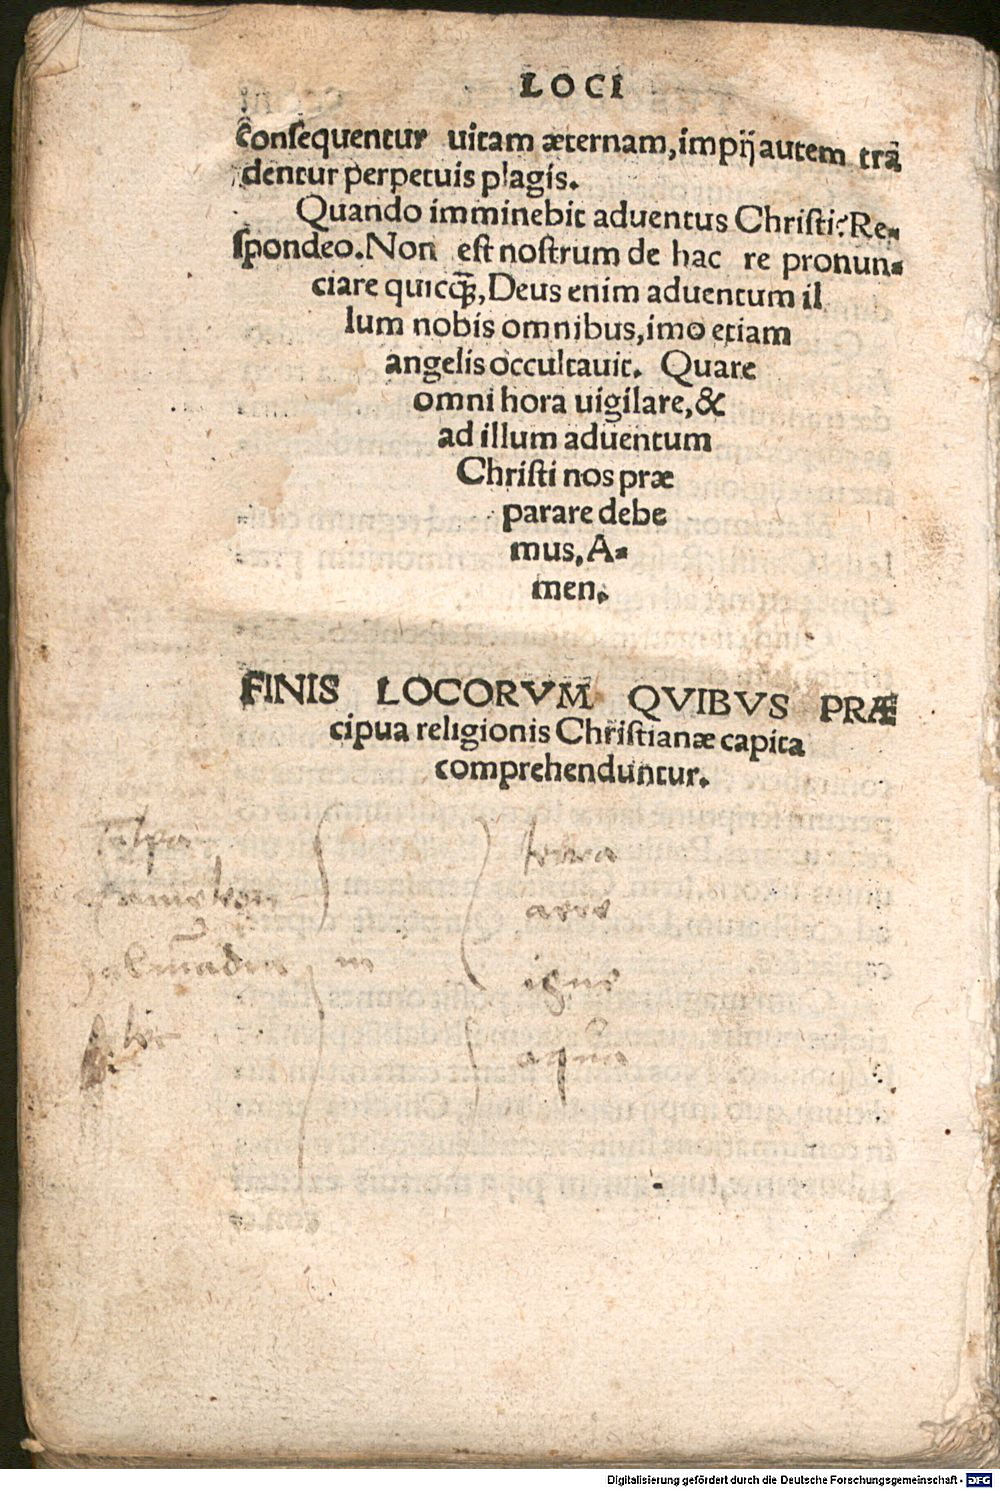 LOCI
consequentur uitam æternam, impij autem trā
dentur perpetuis plagis.
Quando imminebit aduentus Christi? Re-
spondeo. Non est nostrum de hac re pronun-
ciare quicq̃, Deus enim aduentum il
lum nobis omnibus, imo etiam
angelis occultauit. Quare
omni hora uigilare, &
ad illum aduentum
Christi nos præ
parare debe
mus, A-
men.
FINIS LOCORVM QVIBVS PRÆ
cipua religionis Christianæ capita
comprehenduntur.
Talpa terra
aere
in igne
aqua
Digitalisierung gefördert durch die Deutsche Forschungsgemeinschaft - DFG